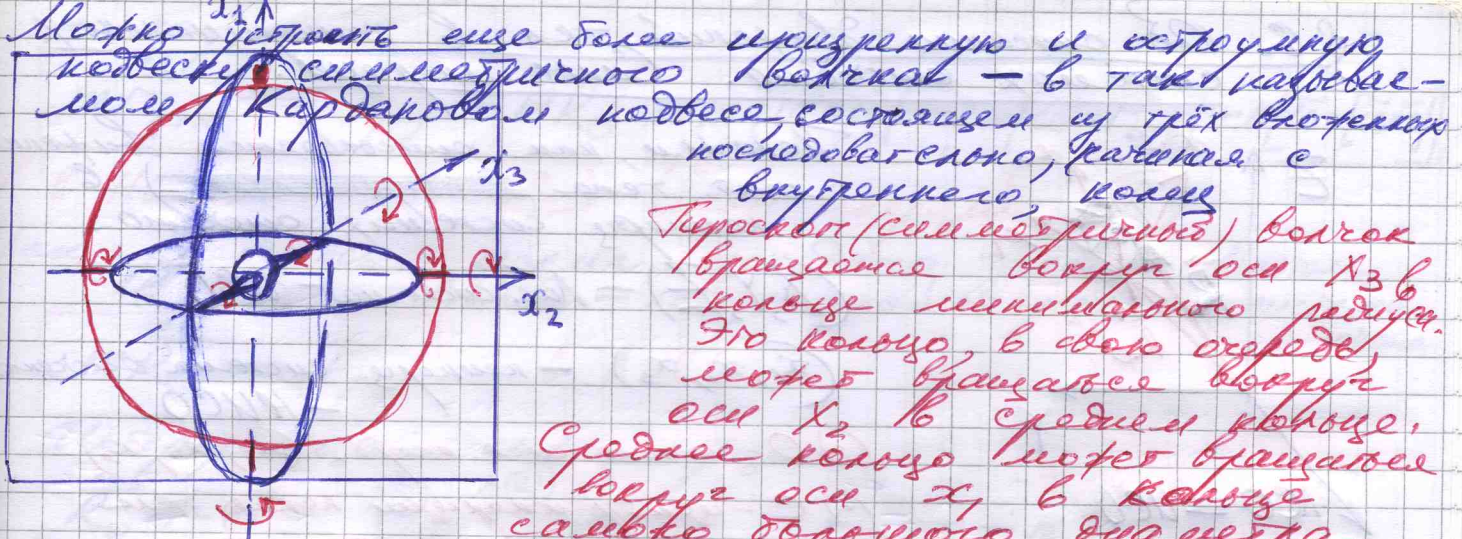 x₁
Можно устроить еще более изощренную и остроумную
подвеску симметричного волчка — в так называе-
мом Кардановом подвесе, состоящем из трёх вложенных
последовательно, начиная с
внутреннего, колец
x₃
Гироскоп (симметричный) волчок
вращается вокруг оси X₃ в
кольце минимального радиуса.
x₂
Это кольцо, в свою очередь,
может вращаться вокруг
оси X₂ в среднем кольце.
Среднее кольцо может вращаться
вокруг оси x₁ в кольце
самого большого диаметра